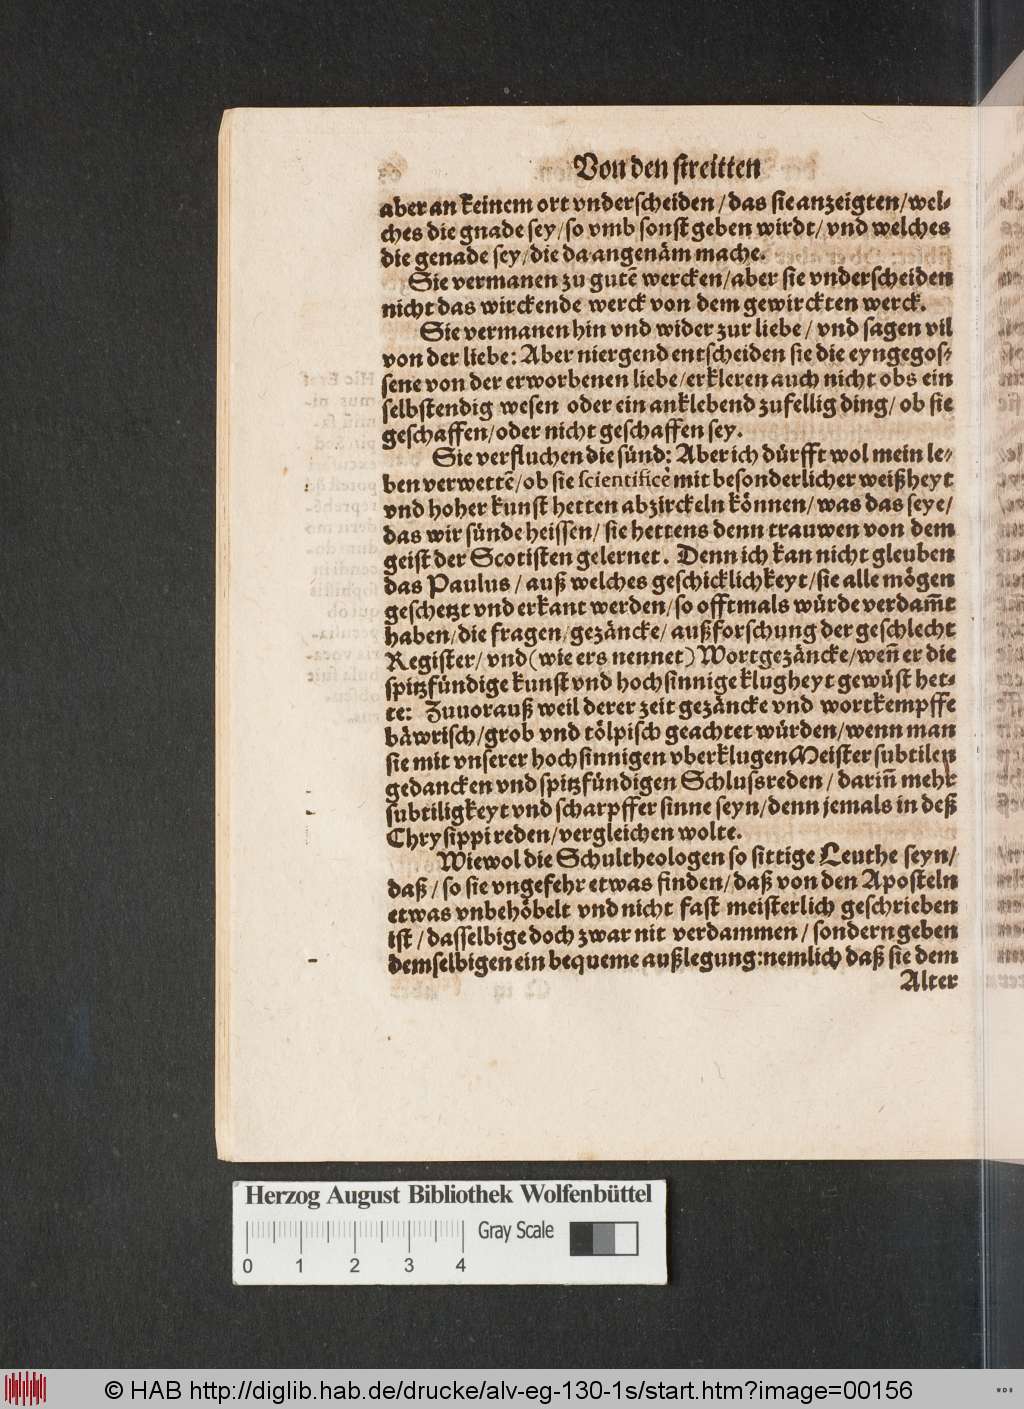 Von den streitten
aber an keinem ort vnderscheiden / das sie anzeigten / wel-
ches die gnade sey / so vmb sonst geben wirdt / vnd welches
die genade sey / die da angenäm mache.
Sie vermanen zu gutē wercken / aber sie vnderscheiden
nicht das wirckende werck von dem gewirckten werck.
Sie vermanen hin vnd wider zur liebe / vnd sagen vil
von der liebe: Aber niergend entscheiden sie die eyngegos-
sene von der erworbenen liebe / erkleren auch nicht obs ein
selbstendig wesen oder ein anklebend zufellig ding / ob sie
geschaffen / oder nicht geschaffen sey.
Sie verfluchen die sünd: Aber ich dürfft wol mein le-
ben verwettē / ob sie scientificè mit besonderlicher weißheyt
vnd hoher kunst hetten abzirckeln können / was das seye /
das wir sünde heissen / sie hettens denn trauwen von dem
geist der Scotisten gelernet. Denn ich kan nicht gleuben
das Paulus / auß welches geschicklichkeyt / sie alle mögen
geschetzt vnd erkant werden / so offtmals würde verdam̄t
haben / die fragen / gezäncke / außforschung der geschlecht
Register / vnd (wie ers nennet) Wortgezäncke / weñ er die
spitzfündige kunst vnd hochsinnige klugheyt gewüst het-
te: Zuuorauß weil derer zeit gezäncke vnd wortkempffe
bäwrisch / grob vnd tölpisch geachtet würden / wenn man
sie mit vnserer hochsinnigen vberklugen Meister subtilen
gedancken vnd spitzfündigen Schlussreden / dariñ mehr
subtiligkeyt vnd scharpffer sinne seyn / denn jemals in deß
Chrysippi reden / vergleichen wolte.
Wiewol die Schultheologen so sittige Leuthe seyn /
daß / so sie vngefehr etwas finden / daß von den Aposteln
etwas vnbehöbelt vnd nicht fast meisterlich geschrieben
ist / dasselbige doch zwar nit verdammen / sondern geben
demselbigen ein bequeme außlegung: nemlich daß sie dem
Alter
Herzog August Bibliothek Wolfenbüttel
Gray Scale
0 1 2 3 4
© HAB http://diglib.hab.de/drucke/alv-eg-130-1s/start.htm?image=00156